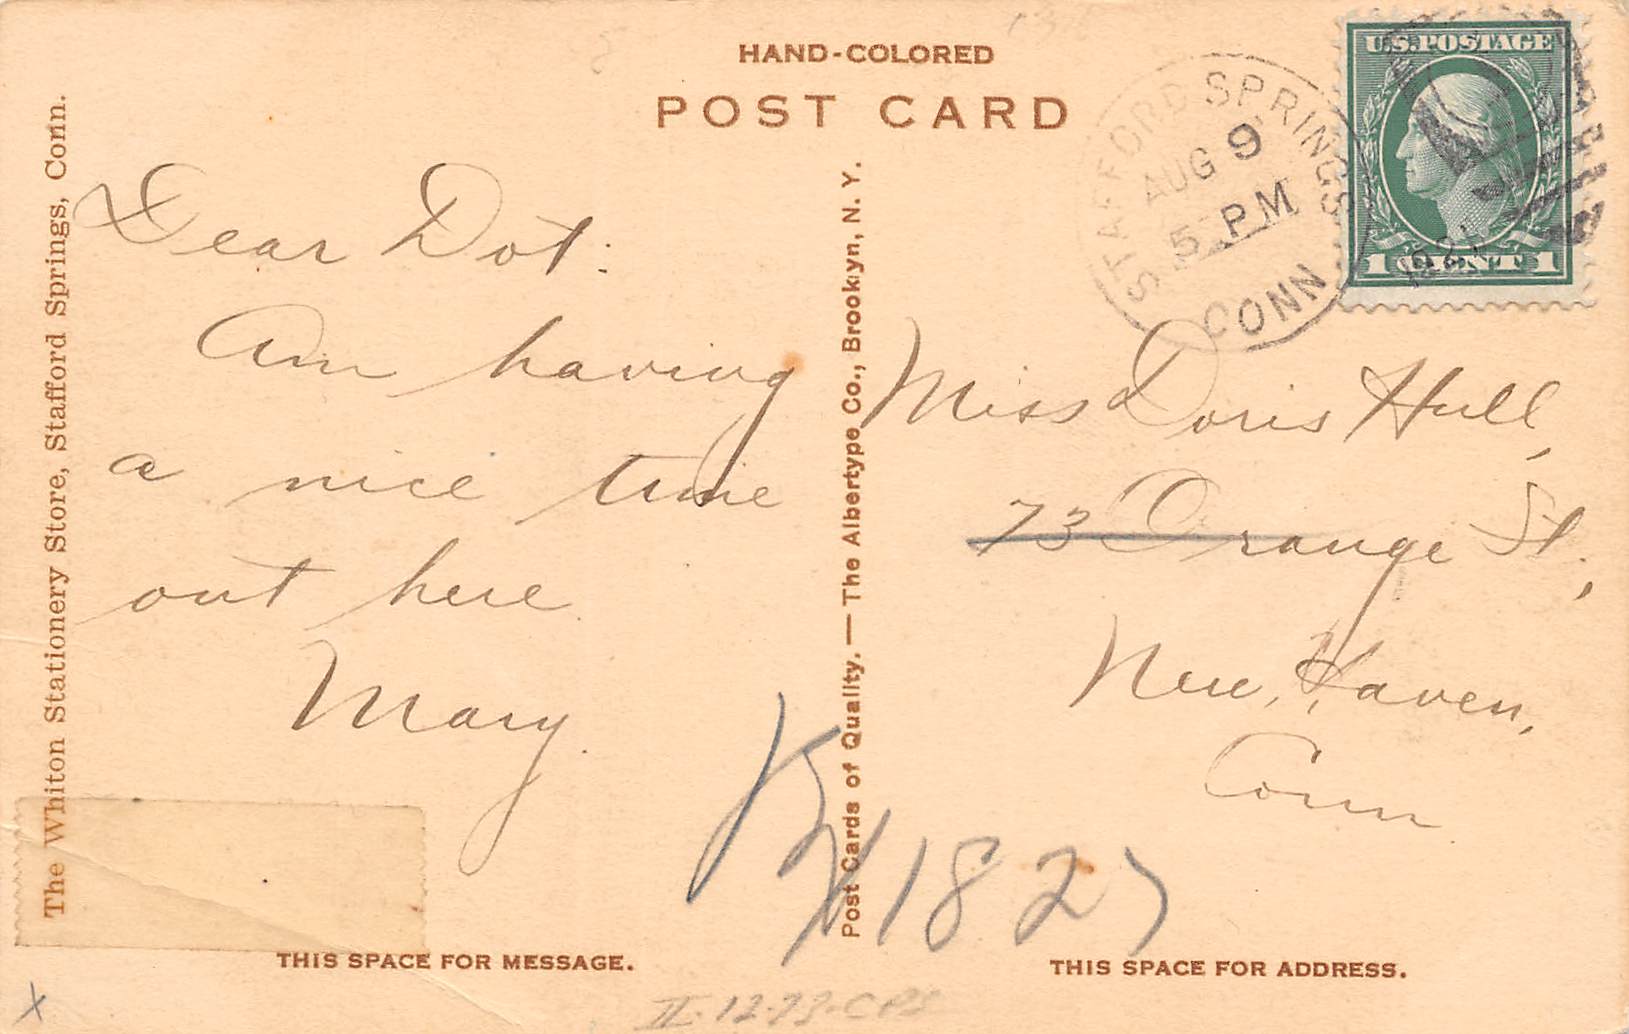 HAND-COLORED
POST CARD
The Whiton Stationery Store, Stafford Springs, Conn.
Dear Dot:
Am having
a nice time
out here
Mary.
THIS SPACE FOR MESSAGE.
Post Cards of Quality. — The Albertype Co., Brooklyn, N. Y.
STAFFORD SPRINGS
AUG 9
5 PM
CONN
U.S. POSTAGE
1 CENT 1
Miss Doris Hull,
73 Orange St.,
New Haven,
Conn
1827
THIS SPACE FOR ADDRESS.
X